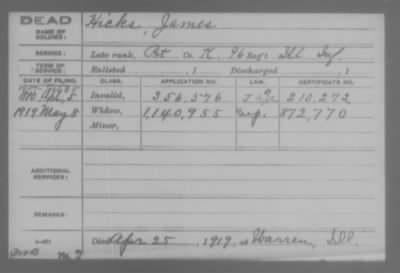 DEAD
NAME OF SOLDIER: Hicks, James
SERVICE: Late rank, Pvt Co. K, 96 Reg't Ill Inf.
TERM OF SERVICE: Enlisted , 1 Discharged , 1
DATE OF FILING. CLASS. APPLICATION NO. LAW. CERTIFICATE NO.
1880 Apr. 8 Invalid, 356,576 210,272
1919 May 8 Widow, 1,140,955 872,770
Minor,
ADDITIONAL SERVICES:
REMARKS:
Died Apr 25, 1919, at Warren, Ill.